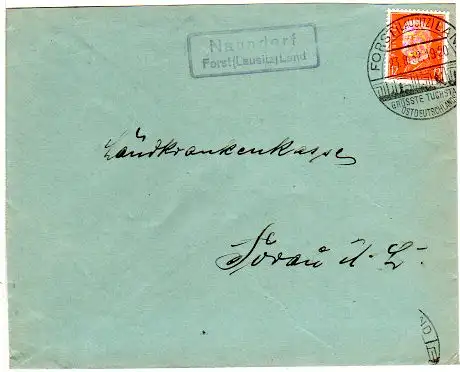 Naundorf
Forst (Lausitz) Land
FORST (LAUSITZ) LAND
GRÖSSTE TUCHSTA
OSTDEUTSCHLANDS
Landkrankenkasse
Sorau N. L.
ND